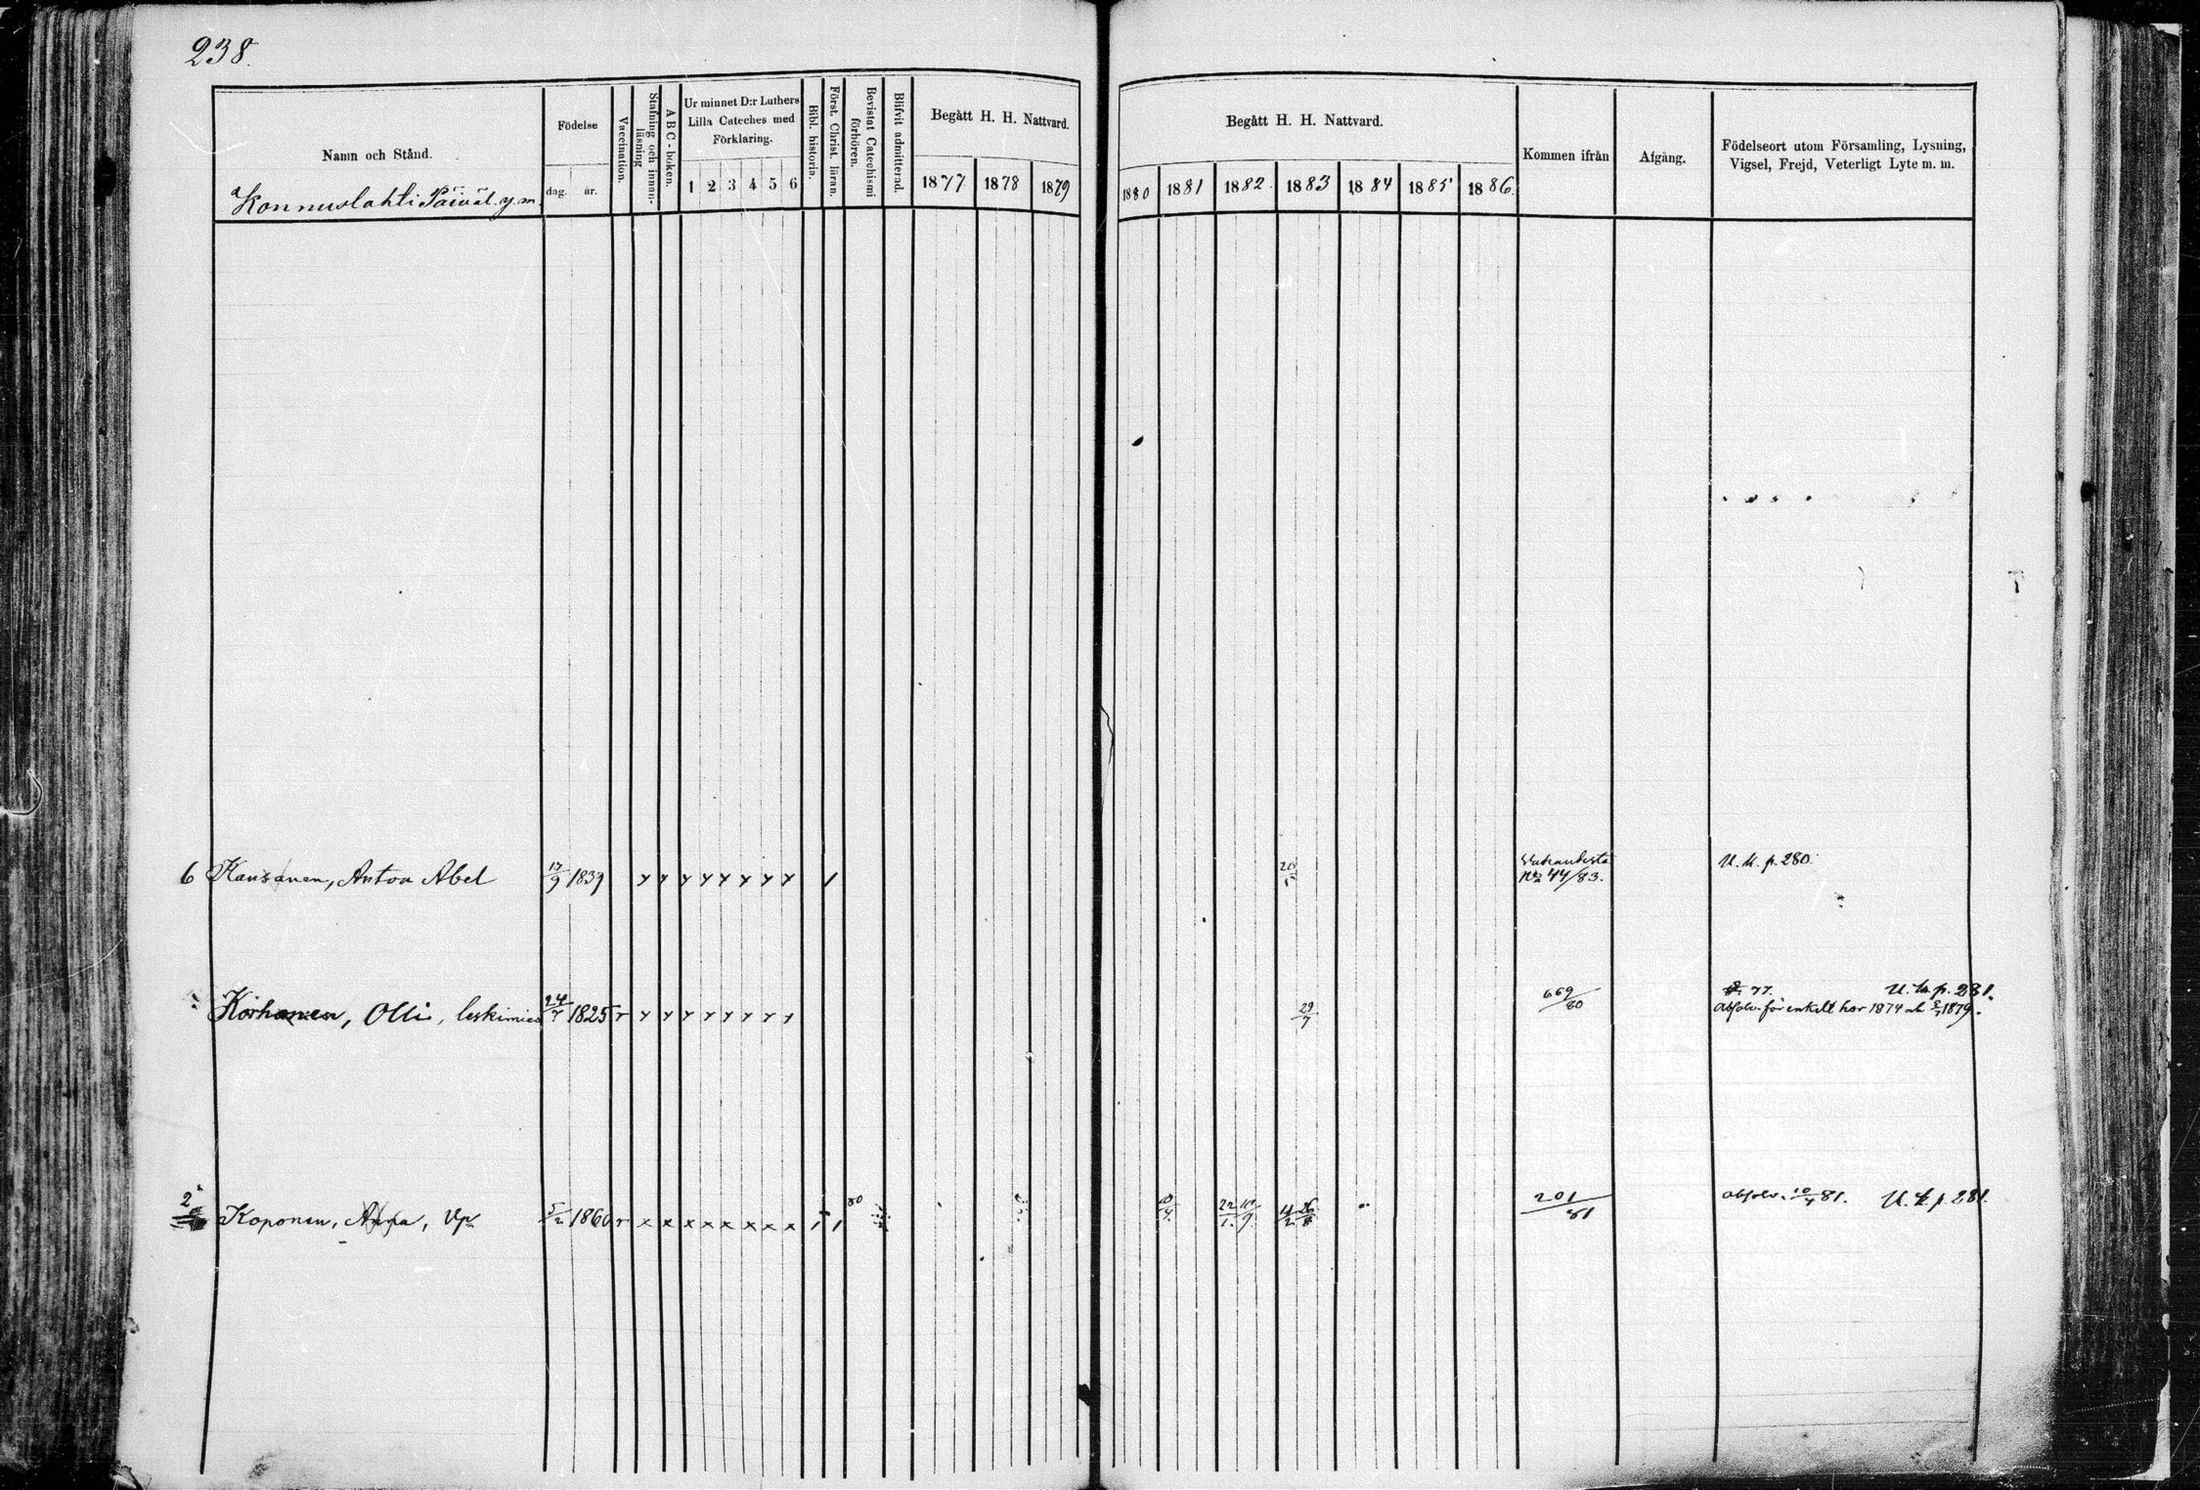 238.
Namn och Stånd.
Konnuslahti Päiväl. y. m.
Födelse
dag. år.
Vaccination.
Stafning och innan-läsning
ABC-boken.
Ur minnet D:r Luthers
Lilla Cateches med
Förklaring.
1 2 3 4 5 6
Bibl. historia.
Först. Christ. läran.
Bevistat Catechismi förhören.
Blifvit admitterad.
Begått H. H. Nattvard.
1877 1878 1879
Begått H. H. Nattvard.
1880 1881 1882 1883 1884 1885 1886
Kommen ifrån
Afgång.
Födelseort utom Församling, Lysning,
Vigsel, Frejd, Veterligt Lyte m. m.
6 Kausanen, Anton Abel 17/9 1839 20/5 No 44/83. U. K. p. 280.
Korhonen, Olli, leskimies 24/7 1825 r 29/7 669/80 77. U. K. p. 281.
Absolv. för enkelt hor 1874 och 1879.
2 Koponen, Anna, 5/2 1860 r 80 10/4 22/1 10/9 4/2 26/8 201/81 absolv. 10/4 81. U. K. p. 281.